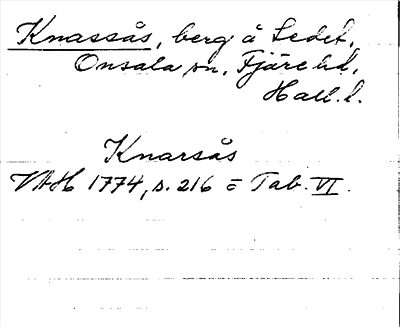 Knassås, berg å Ledet,
Onsala sn, Fjäre hd,
Hall. l.
Knarsås
VAH 1774, s. 216 = Tab. VI.